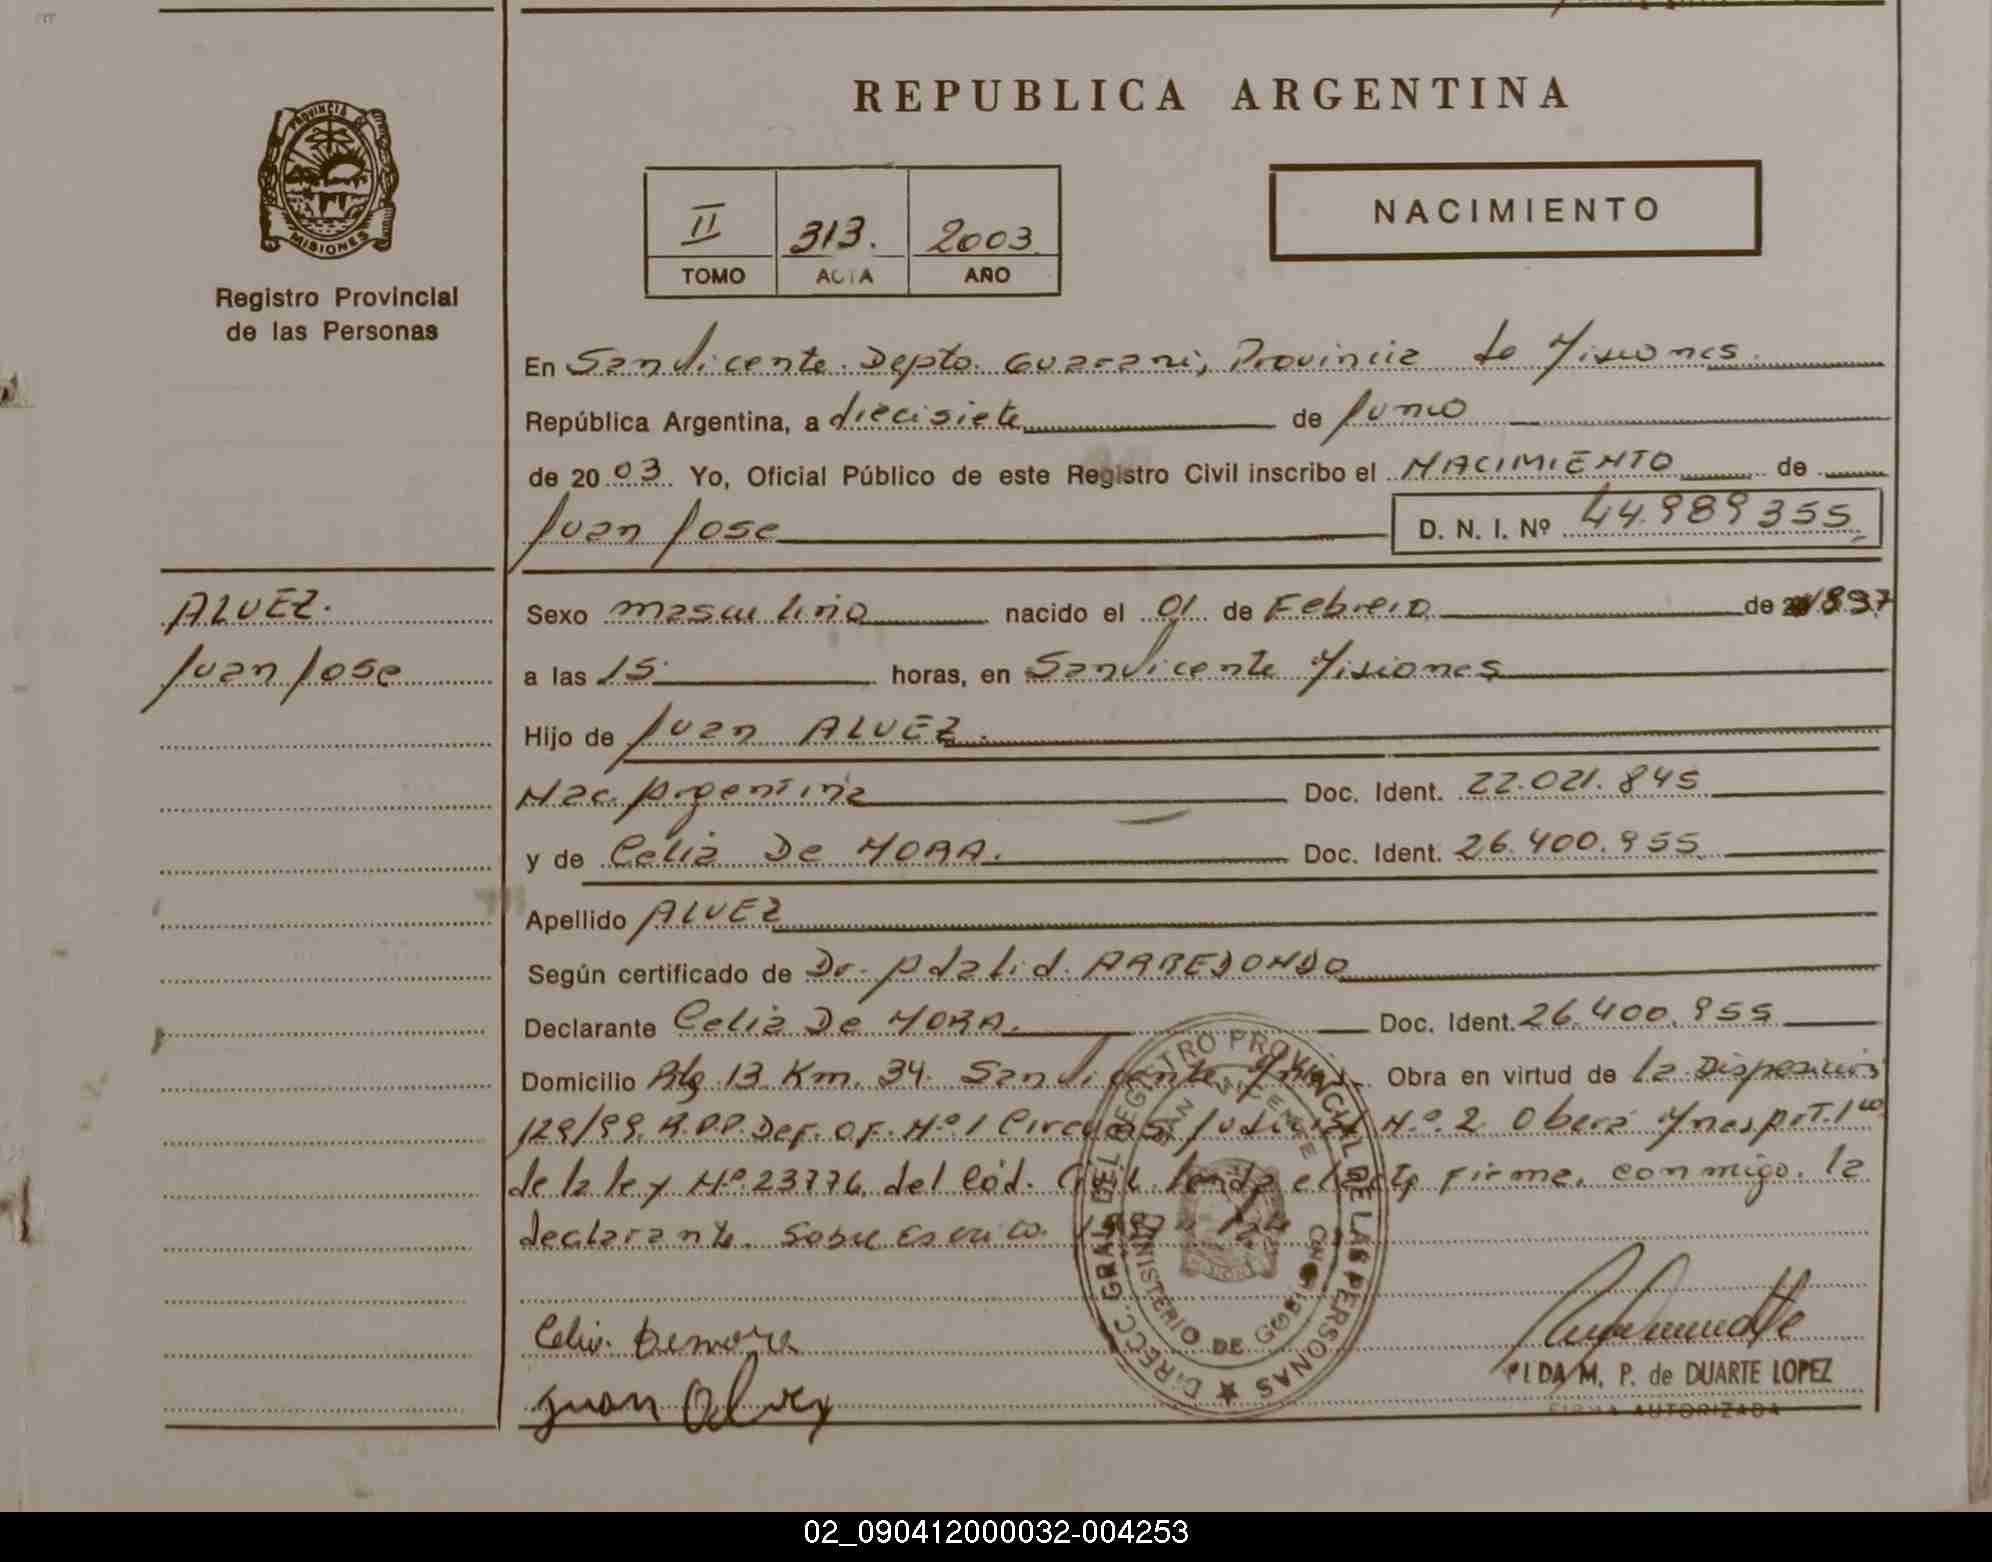 REPUBLICA ARGENTINA
PROVINCIA DE
MISIONES
Registro Provincial
de las Personas
II 313. 2003
TOMO ACTA AÑO
NACIMIENTO
En San Vicente. Depto. Guarani, Provincia de Misiones.
República Argentina, a diecisiete de Junio
de 2003. Yo, Oficial Público de este Registro Civil inscribo el NACIMIENTO de
Juan Jose D. N. I. Nº 44.989355
ALVEZ.
Juan Jose
Sexo masculino nacido el 01 de Febrero de
a las 15 horas, en San Vicente Misiones
Hijo de Juan ALVEZ.
Nac. Argentina Doc. Ident. 22.021.845
y de Celia De MORA. Doc. Ident. 26.400.955
Apellido ALVEZ
Según certificado de Dr. Adalid. ARREDONDO
Declarante Celia De MORA. Doc. Ident. 26.400.955
Domicilio Rta 13 Km. 34. San Vicente Obra en virtud de la Disposición
129/99. R.P.P. Def. Of. Nº 1 Judicial Nº 2 Obera
de la ley Nº 23776, del Cód. Civil. el acta firma, conmigo. la
declarante. Sobre Escrito. 1997
DIRECC. GRAL DEL REGISTRO PROVINCIAL DE LAS PERSONAS
SAN VICENTE
MINISTERIO DE GOBIERNO
MISIONES
Celia Demora
Juan Alvez
M. P. de DUARTE LOPEZ
FIRMA AUTORIZADA
02_090412000032-004253